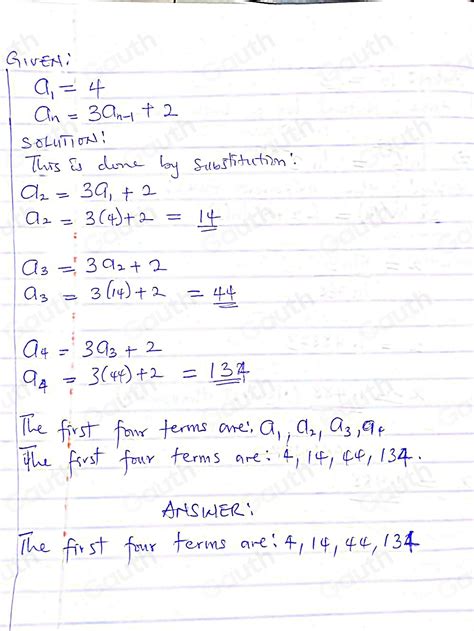 GIVEN:
a₁ = 4
aₙ = 3aₙ₋₁ + 2
SOLUTION:
This is done by substitution:
a₂ = 3a₁ + 2
a₂ = 3(4)+2 = 14
a₃ = 3a₂ + 2
a₃ = 3(14)+2 = 44
a₄ = 3a₃ + 2
a₄ = 3(44)+2 = 134
The first four terms are: a₁, a₂, a₃, a₄
The first four terms are: 4, 14, 44, 134.
ANSWER:
The first four terms are: 4, 14, 44, 134